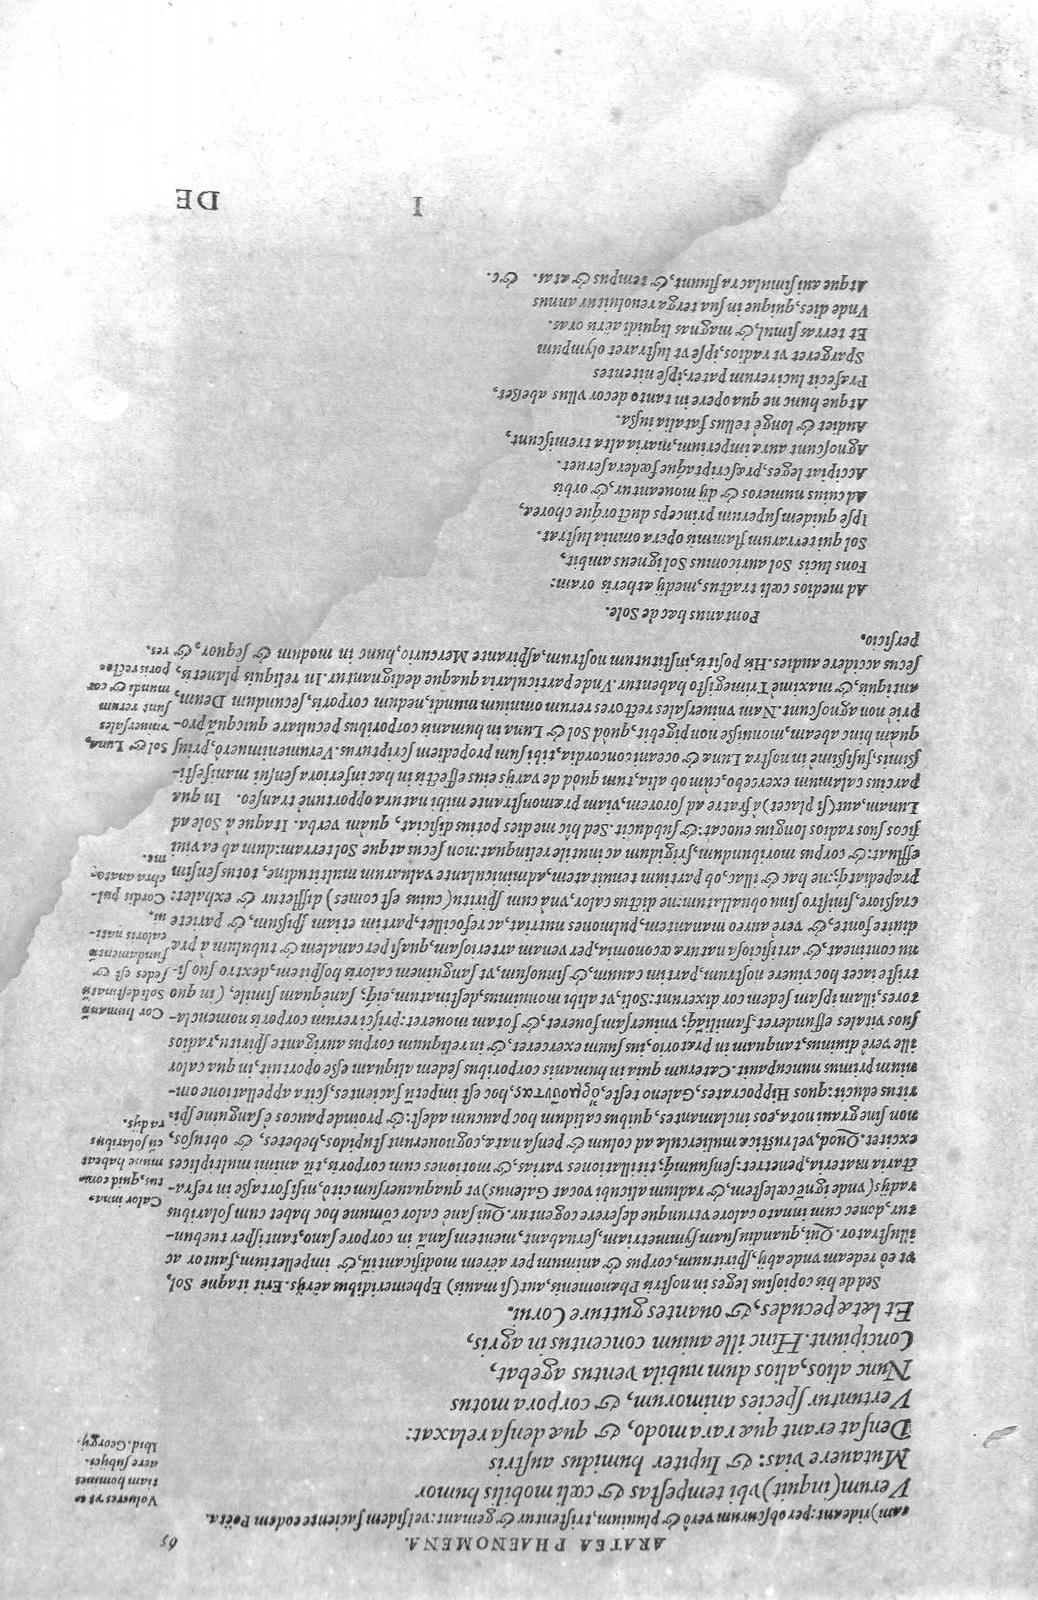 ARATEA PHAENOMENA. 65
eam) rideant: per obscurum verò & pluuium, tristentur & gemant: velsisdem faciente eodem Poëta.
Verum (inquit) vbi tempestas & cœli mobilis humor
Mutauere vias: & Iupiter humidus austris
Densat erant quæ rara modo, & quæ densa relaxat:
Vertuntur species animorum, & corpora motus
Nunc alios, alios dum nubila ventus agebat,
Concipiunt. Hinc ille auium concentus in agris,
Et lætæ pecudes, & ouantes gutture Corui.
Volucres vt e-
tiam homines
aere subijci.
Ibid. Georg.
Sed de his copiosius leges in nostris Phænomenis, aut (si mauis) Ephemeridibus aërijs. Erit itaque Sol,
vt eò redeam vnde abij, spirituum, corpus & animum per aërem modificantiũ, & impellentium, fautor ac
illustrator. Qui, quandiu suam symmetriam, seruabunt, mentem sanã in corpore sano, tantisper tuebun-
tur, donec cum innato calore vtrunque deserere cogentur. Qui sanè calor cõmune hoc habet cum solaribus
radys (vnde ignẽ cœlestem, & radium alicubi vocat Galenus) vt quaquauersum citò, nisi fortasse in refra-
ctaria materia, penetret: sensuumq́; titillationes varias, & motiones cum corporis, tũ animi multiplices
excitet. Quod, vel rusticæ mulierculæ ad colum & pensa nata, cognouerunt stupidos, hebetes, & obtusos,
non sine graui nota, eos inclamantes, quibus calidum hoc paucum adest: & proinde paucos è sanguine spi-
ritus educit: quos Hippocrates, Galeno teste, ὁρμοῦντας, hoc est impetũ facientes, scita appellatione om-
nium primus nuncupauit. Cæterum quia in humanis corporibus sedem aliquam esse oportuit, in qua calor
ille verè diuinus, tanquam in prætorio, ius suum exerceret, & in reliquum corpus aurigante spiritu, radios
suos vitales effunderet. familiãq́; vniuersam foueret, & totam moueret: prisci rerum corporis nomencla-
tores, illam ipsam sedem cor dixerunt: Soli, vt alibi monuimus, destinatum, eiq́; sanèquam simile, (in quo
Calor inna-
tus, quid com-
mune habeat
cũ solaribus
radijs.
Cor humanũ
Soli destinatũ
sedes est &
fundamentũ
caloris nati-
ui,
tristè iacet hoc viuere nostrum, partim cauum, & sinuosum, vt sanguinem caloris hospitem, dextro suo si-
nu contineat, & artificiosa naturæ œconomia, per venam arteriosam, quasi per canalem & tubulum à præ
diuite fonte, & verè aureo manantem, pulmones nutriat, ac refocillet, partim etiam spissum, & pariete
crassiore, sinistro sinu obuallatum: ne dictus calor, vnà cum spiritu (cuius est comes) diffletur & exhalet:
præpeditq́; ne hac & illac, ob partium tenuitatem, adminiculante valuarum multitudine, totus sensim
effluat: & corpus moribundum, frigidum ac inutile relinquat: non secus atque Sol terram: dum ab ea viui
ficos suos radios longius euocat: & subducit. Sed hîc me dies potius deficiat, quàm verba. Itaque à Sole ad
Lunam, aut (si placet) à fratre ad sororem, viam præmonstrante mihi natura opportunè transeo. In qua
Cordis pul-
chra anato-
me.
parcius calamum exercebo, cum ob alia, tum quòd de varijs eius effectis in hæc inferiora sensui manifesti-
ssimis, fusissimè in nostra Lunæ & oceani concordia, tibi sum propediem scripturus. Verumenimuerò, priùs
quàm hinc abeam, monuisse non pigebit, quòd Sol & Luna in humanis corporibus peculiare quicquã pro-
priè non agnoscunt. Nam vniuersales rectores rerum omnium mundi, nedum corporis, secundum Deum,
antiquis, & maximè Trimegisto habentur. Vnde particularia quæque dedignantur. In reliquis planetis,
secus accidere audies. His positis, institutum nostrum, aspirante Mercurio, hunc in modum & sequor, &
perficio.
Sol & Luna,
vniuersales
sunt rerum
mundi & cor
poris recto-
res.
Pontanus hæc de Sole.
Ad medios cœli tractus, medij ætheris oram:
Fons lucis Sol auricomus Sol igneus ambit,
Sol qui terrarum flammis opera omnia lustrat.
Ipse quidem superum princeps ductorque choreæ,
Ad cuius numeros & dij moueantur, & orbis
Accipiat leges, præscriptáque fœdera seruet.
Agnoscunt auræ imperium, maria alta tremiscunt,
Audiet & longè tellus fatalia iussa.
Atque hunc ne qua opere in tanto decor vllus abesset,
Præfecit luci rerum pater, ipse nitentes
Spargeret vt radios, ipse vt lustraret olympum
Et terras simul, & magnas liquidi aëris oras.
Vnde dies, quique in sua terga reuoluitur annus
Atque æui simulacra fluunt, & tempus & ætas. &c.
I DE